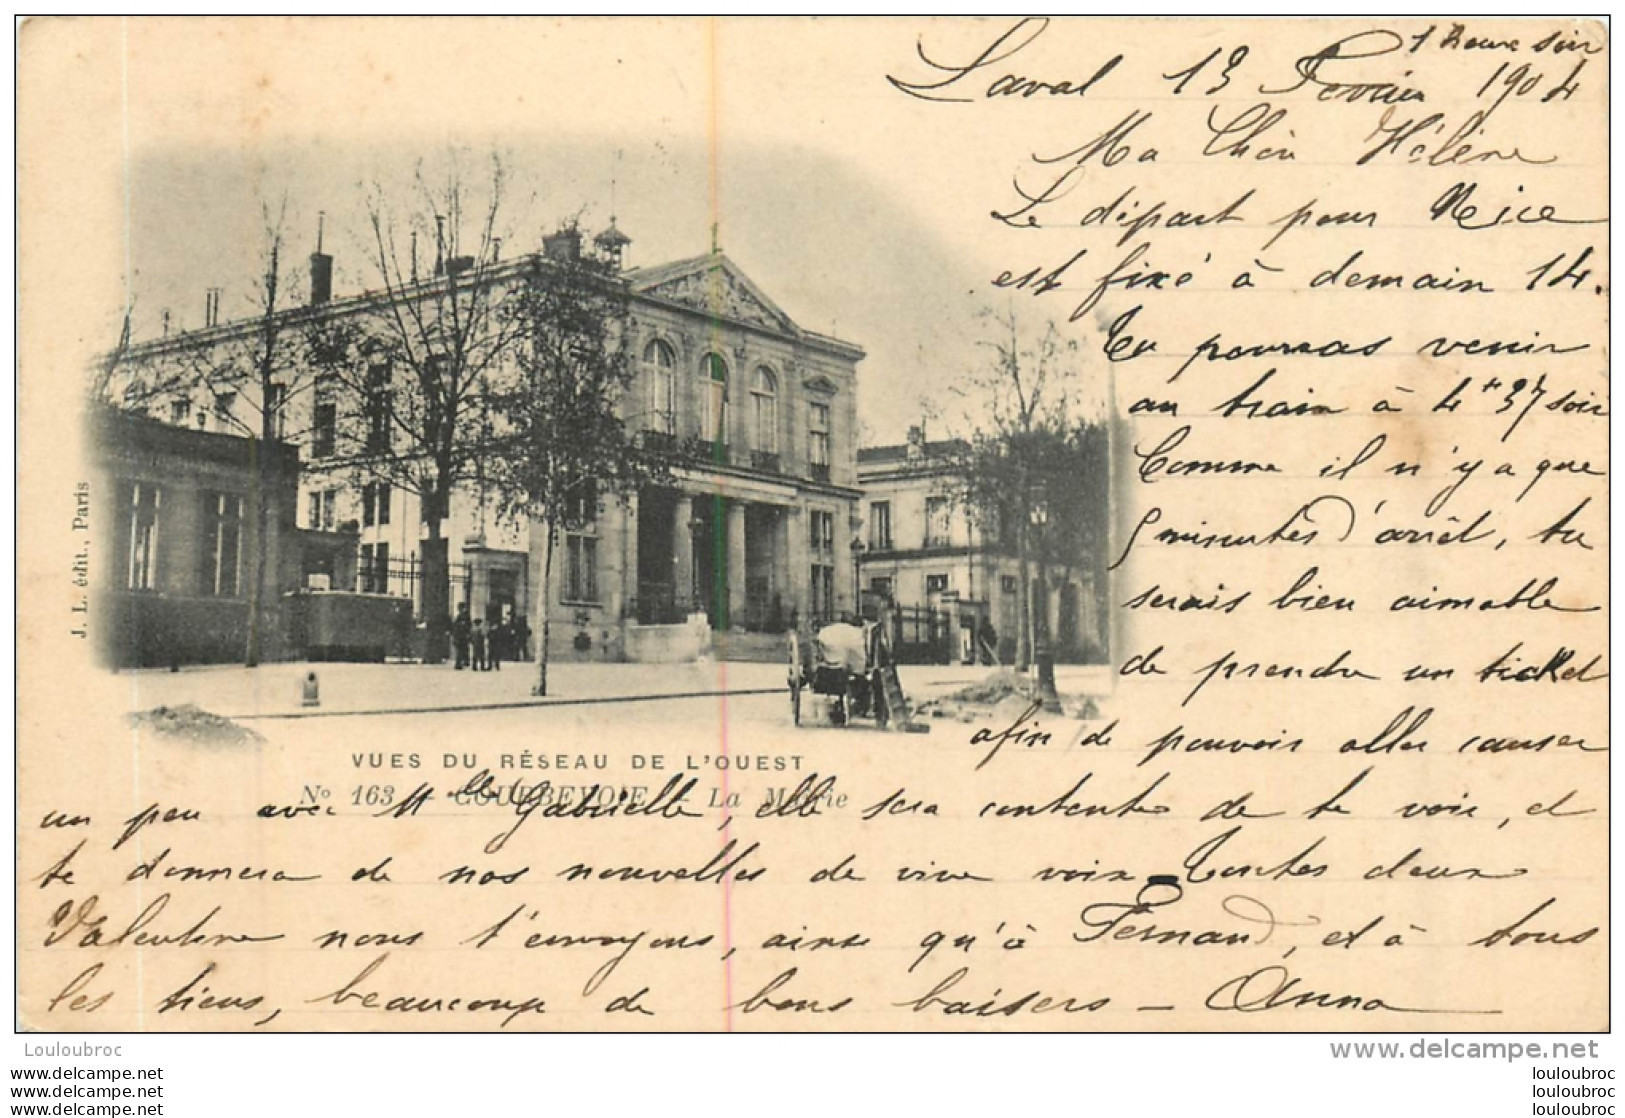 1 heure soir
Laval 13 Fevrier 1904
Ma Chère Hélène
Le départ pour Nice
est fixé à demain 14.
Tu pourras venir
au train à 4h 37 soir
Comme il n'y a que
5 minutes d'arrêt, tu
serais bien aimable
de prendre un ticket
afin de pouvoir aller causer
un peu avec Mlle Gabrielle, elle sera contente de te voir, et
te donnera de nos nouvelles de vive voix. Toutes deux
Valentine nous t'envoyons, ainsi qu'à Fernand, et à tous
les tiens, beaucoup de bons baisers — Anna
J. L. édit., Paris
VUES DU RÉSEAU DE L'OUEST
No 163 - COURBEVOIE - La Mairie
Louloubroc
www.delcampe.net
louloubroc
louloubroc
louloubroc
louloubroc
louloubroc
louloubroc